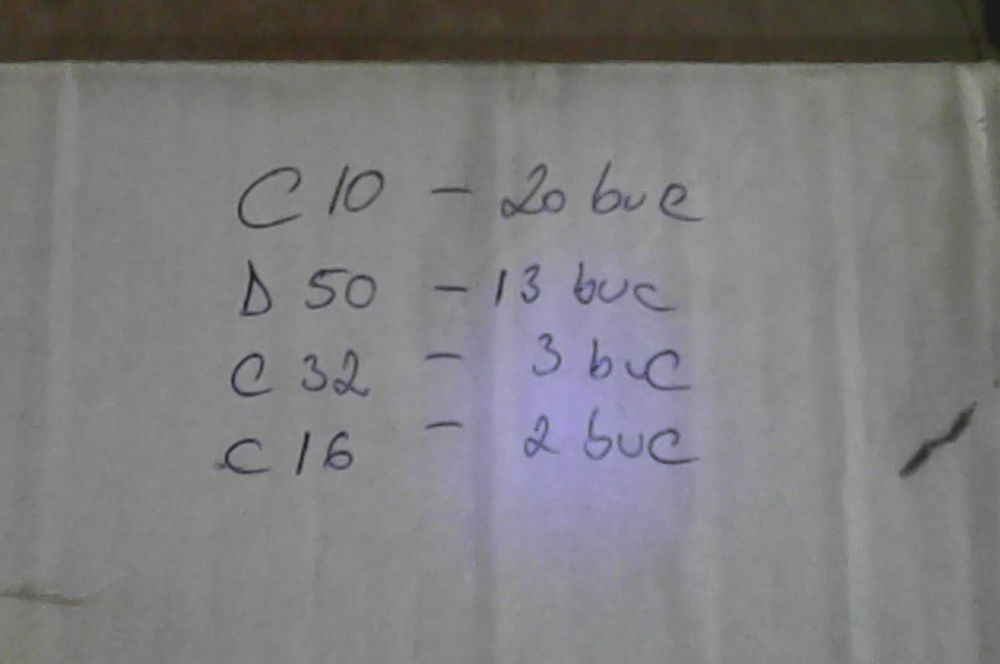 C 10 - 20 buc
D 50 - 13 buc
C 32 - 3 buc
C 16 - 2 buc